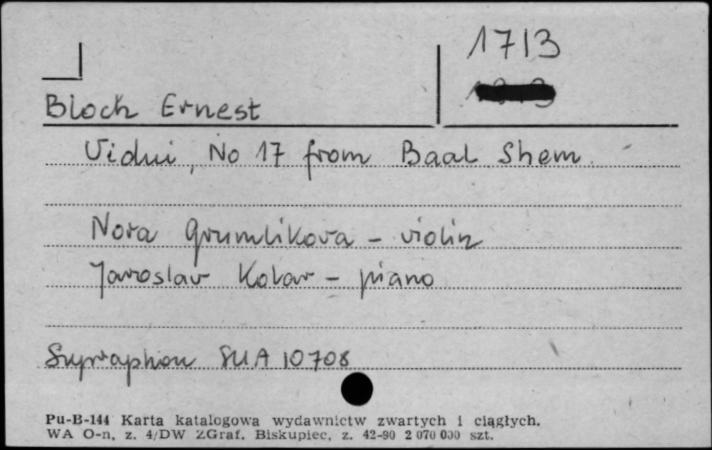 1713
Bloch Ernest
Vidui, No 17 from Baal Shem
Nora Grumlikova - violin
Jaroslav Kolar - piano
Supraphon SUA 10708
Pu-B-144 Karta katalogowa wydawnictw zwartych i ciągłych.
WA O-n, z. 4/DW ZGraf. Biskupiec, z. 42-90 2 070 000 szt.